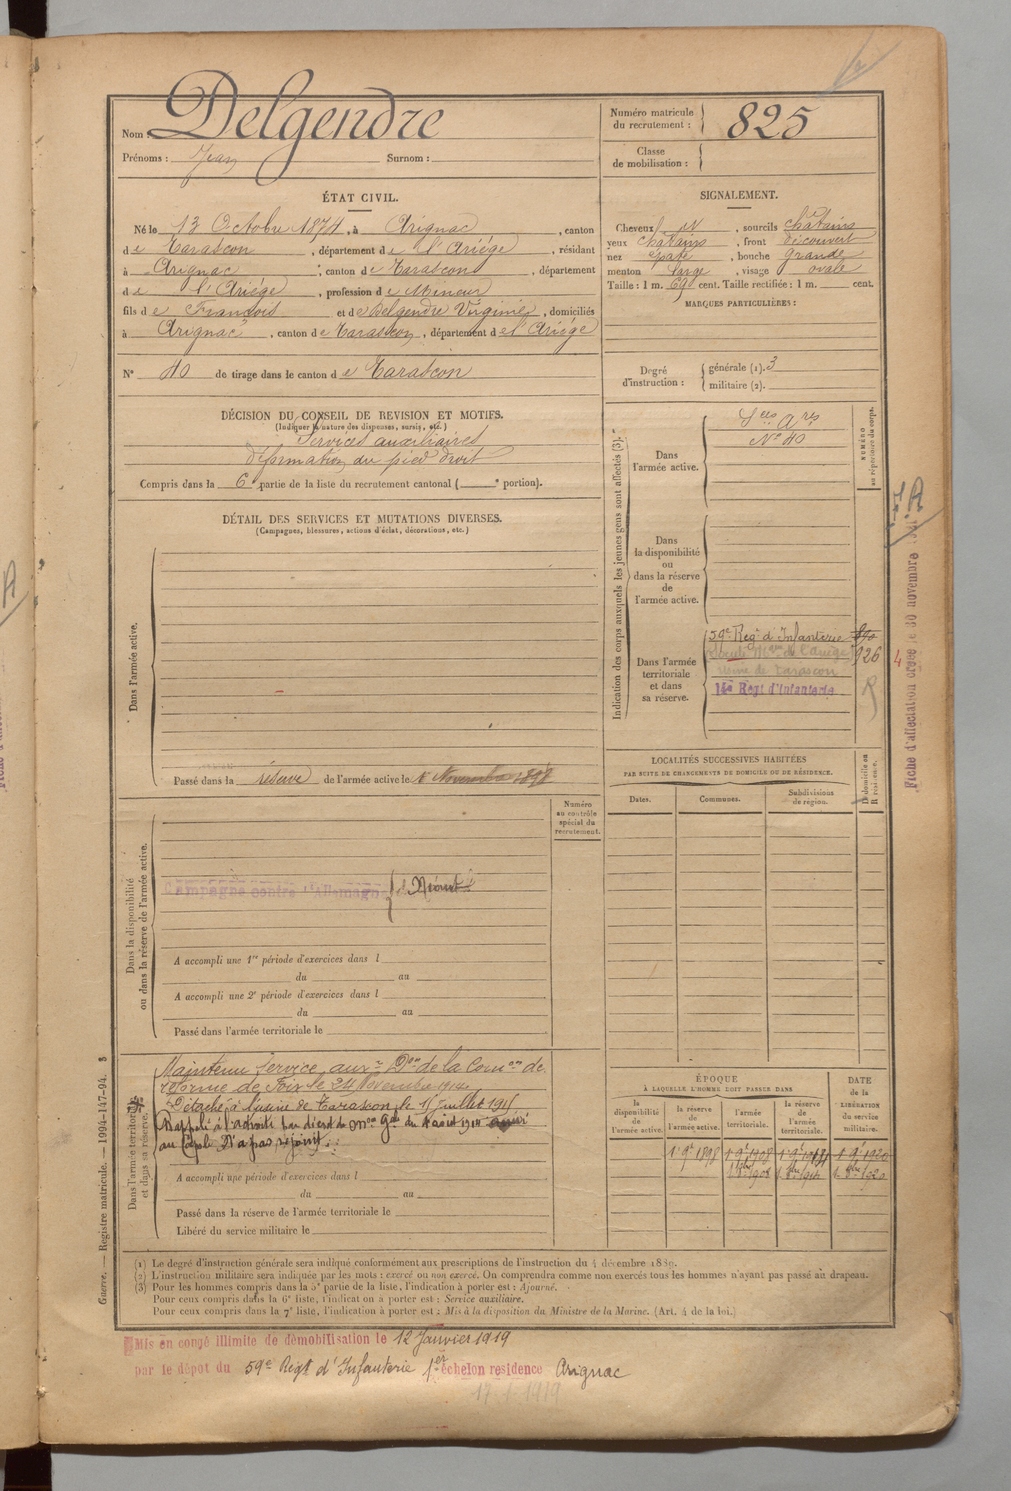 Nom : Delgendre
Prénoms : Jean Surnom :
Numéro matricule du recrutement : 825
Classe de mobilisation :
ÉTAT CIVIL.
Né le 13 Octobre 1874, à Arignac, canton
de Tarascon, département de l'Ariége, résidant
à Arignac, canton de Tarascon, département
de l'Ariége, profession de Mineur
fils de François et de Delgendre Virginie, domiciliés
à Arignac, canton de Tarascon, département de l'Ariége
N° 40 de tirage dans le canton de Tarascon
SIGNALEMENT.
Cheveux et, sourcils châtains
yeux châtains, front découvert
nez épaté, bouche grande
menton large, visage ovale
Taille : 1 m. 69 cent. Taille rectifiée : 1 m. cent.
MARQUES PARTICULIÈRES :
Degré d'instruction : générale (1). 3
militaire (2).
DÉCISION DU CONSEIL DE REVISION ET MOTIFS.
(Indiquer la nature des dispenses, sursis, etc.)
Services auxiliaires
déformation du pied droit
Compris dans la 6e partie de la liste du recrutement cantonal ( e portion).
DÉTAIL DES SERVICES ET MUTATIONS DIVERSES.
(Campagnes, blessures, actions d'éclat, décorations, etc.)
Dans l'armée active.
Passé dans la réserve de l'armée active le 1er Novembre 1898
Indication des corps auxquels les jeunes gens sont affectés (3).
NUMÉRO au répertoire du corps.
Dans l'armée active.
Sces Ares
N° 40
Dans la disponibilité ou dans la réserve de l'armée active.
Dans l'armée territoriale et dans sa réserve.
59e Régt d'Infanterie
926
usine de Tarascon
14e Regt d'Infanterie
R
Fiche d'affectation créée le 30 novembre
LOCALITÉS SUCCESSIVES HABITÉES
PAR SUITE DE CHANGEMENTS DE DOMICILE OU DE RÉSIDENCE.
Dates. Communes. Subdivisions de région. D domicile ou R résidence.
Numéro au contrôle spécial du recrutement.
Dans la disponibilité ou dans la réserve de l'armée active.
Campagne contre l'Allemagne
A accompli une 1re période d'exercices dans l
du au
A accompli une 2e période d'exercices dans l
du au
Passé dans l'armée territoriale le
Dans l'armée territoriale et dans sa réserve.
Maintenu Service auxre Don de la Comon de
réforme de Foix le 24 Novembre 1914.
Détaché à l'usine de Tarascon le 15 juillet 1915
Rappelé à l'activité par décret de mon gale du 1 août 1914
N'a pas rejoint.
A accompli une période d'exercices dans l
du au
Passé dans la réserve de l'armée territoriale le
Libéré du service militaire le
ÉPOQUE
À LAQUELLE L'HOMME DOIT PASSER DANS
la disponibilité de l'armée active. la réserve de l'armée active. l'armée territoriale. la réserve de l'armée territoriale.
DATE DE LA LIBÉRATION du service militaire.
1 9bre 1898 1 9bre 1908 1 9bre 1914 1 9bre 1920
Guerre. — Registre matricule. — 1994-147-94.
(1) Le degré d'instruction générale sera indiqué conformément aux prescriptions de l'instruction du 4 décembre 1889.
(2) L'instruction militaire sera indiquée par les mots : exercé ou non exercé. On comprendra comme non exercés tous les hommes n'ayant pas passé au drapeau.
(3) Pour les hommes compris dans la 5e partie de la liste, l'indication à porter est : Ajourné.
Pour ceux compris dans la 6e liste, l'indication à porter est : Service auxiliaire.
Pour ceux compris dans la 7e liste, l'indication à porter est : Mis à la disposition du Ministre de la Marine. (Art. 4 de la loi.)
Mis en congé illimité de démobilisation le 12 Janvier 1919
par le dépôt du 59e Régt d'Infanterie 1er échelon résidence Arignac